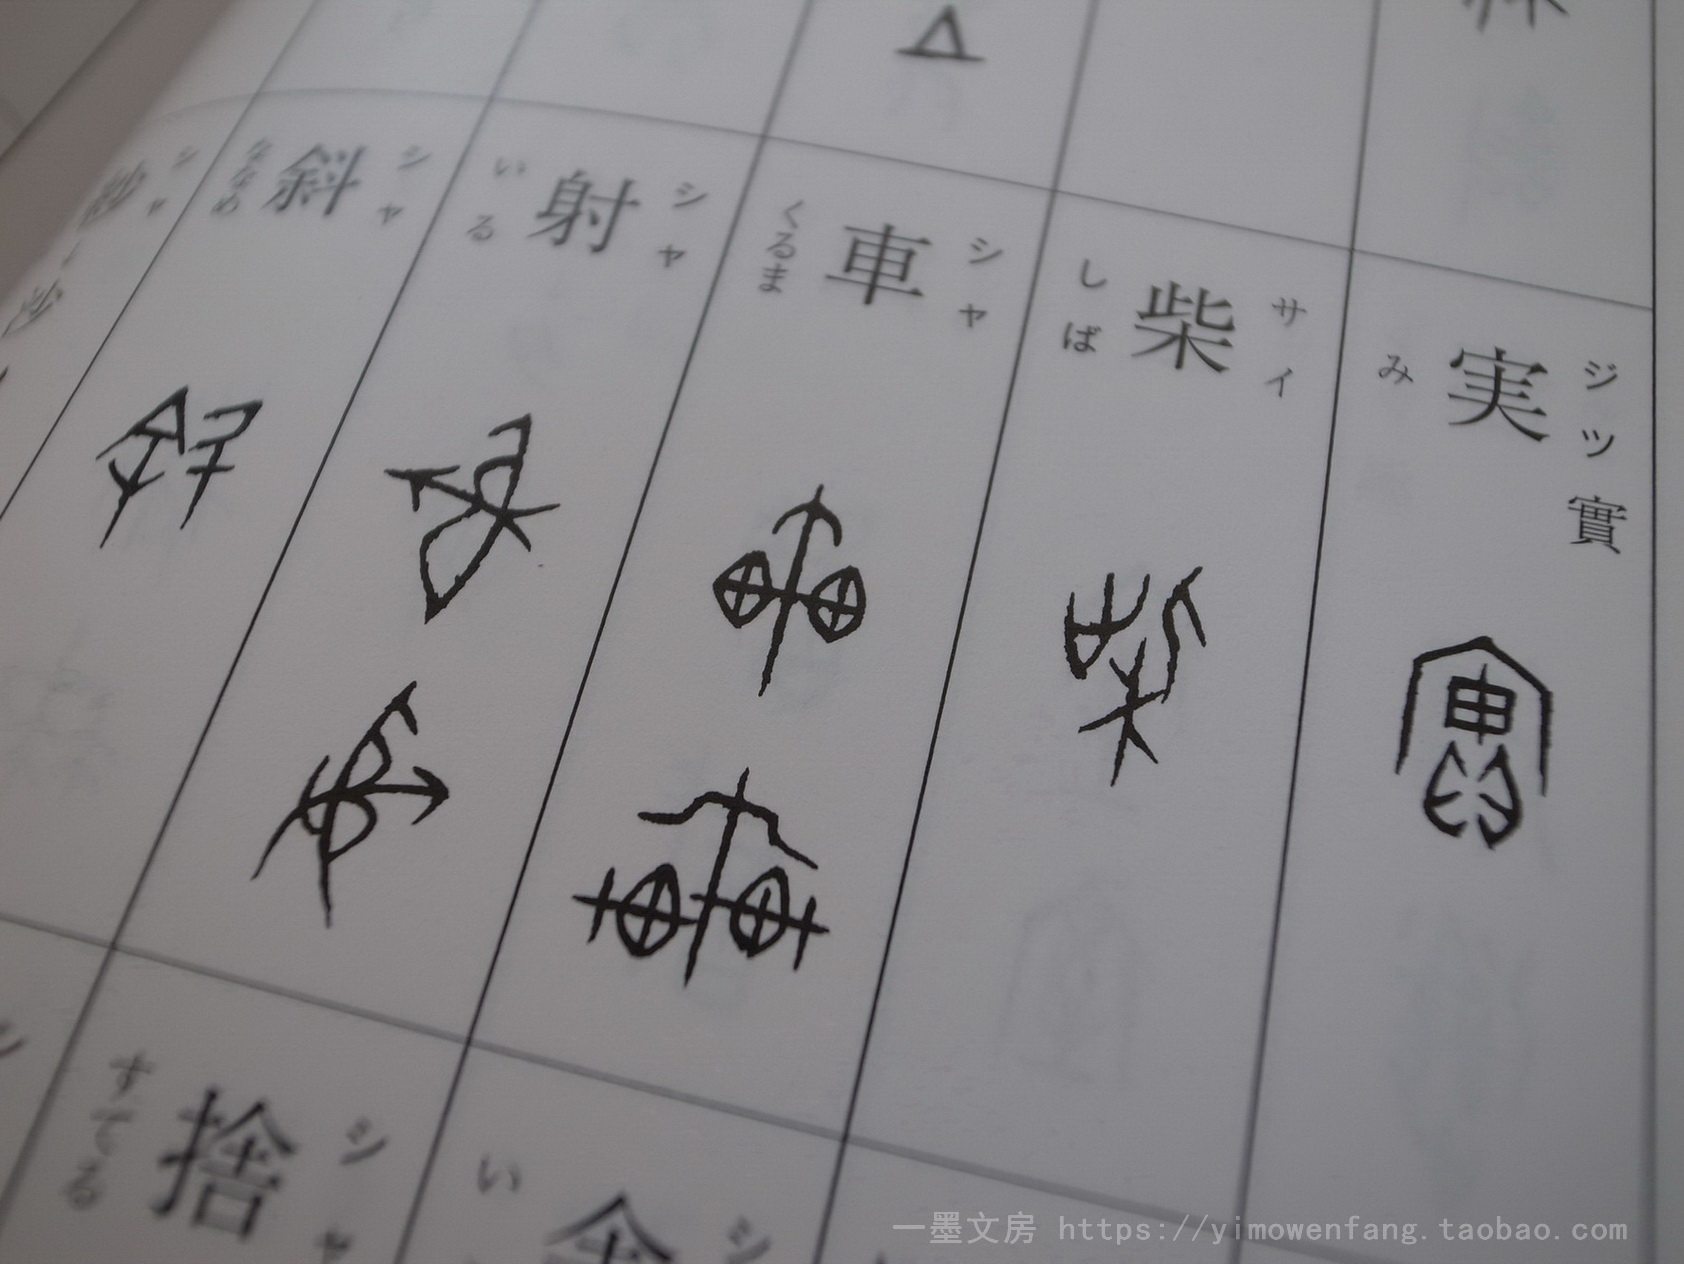 ジツ 實
実
み
サイ
柴
しば
シャ
車
くるま
シャ
射
いる
シャ
斜
ななめ
シャ
シャ
捨
すてる
い
一墨文房 https://yimowenfang.taobao.com